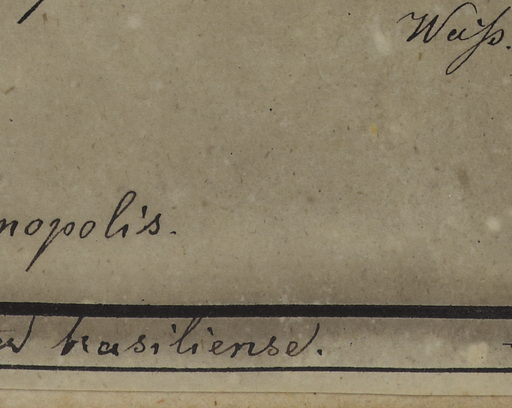 Weiß.
nopolis.
brasiliense.